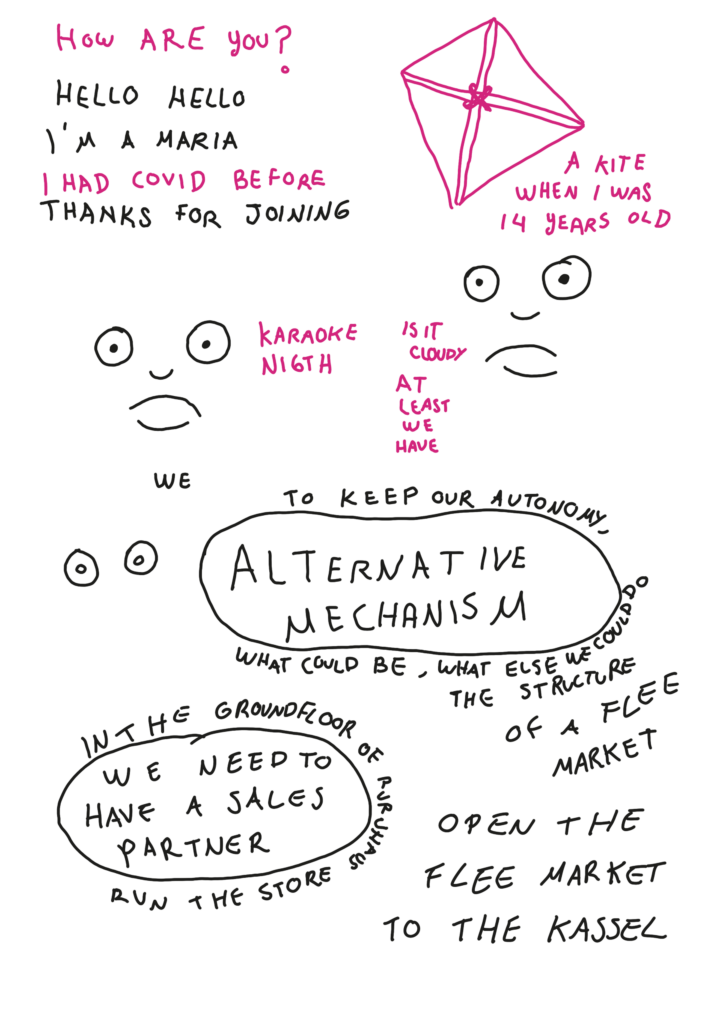 HOW ARE YOU?
HELLO HELLO
I'M A MARIA
I HAD COVID BEFORE
THANKS FOR JOINING
A KITE
WHEN I WAS
14 YEARS OLD
KARAOKE
NIGTH
IS IT
CLOUDY
AT
LEAST
WE
HAVE
WE
TO KEEP OUR AUTONOMY,
ALTERNATIVE
MECHANISM
WHAT COULD BE, WHAT ELSE WE COULD DO
THE STRUCTURE
OF A FLEE
MARKET
IN THE GROUNDFLOOR OF RURUHAUS
WE NEED TO
HAVE A SALES
PARTNER
RUN THE STORE
OPEN THE
FLEE MARKET
TO THE KASSEL